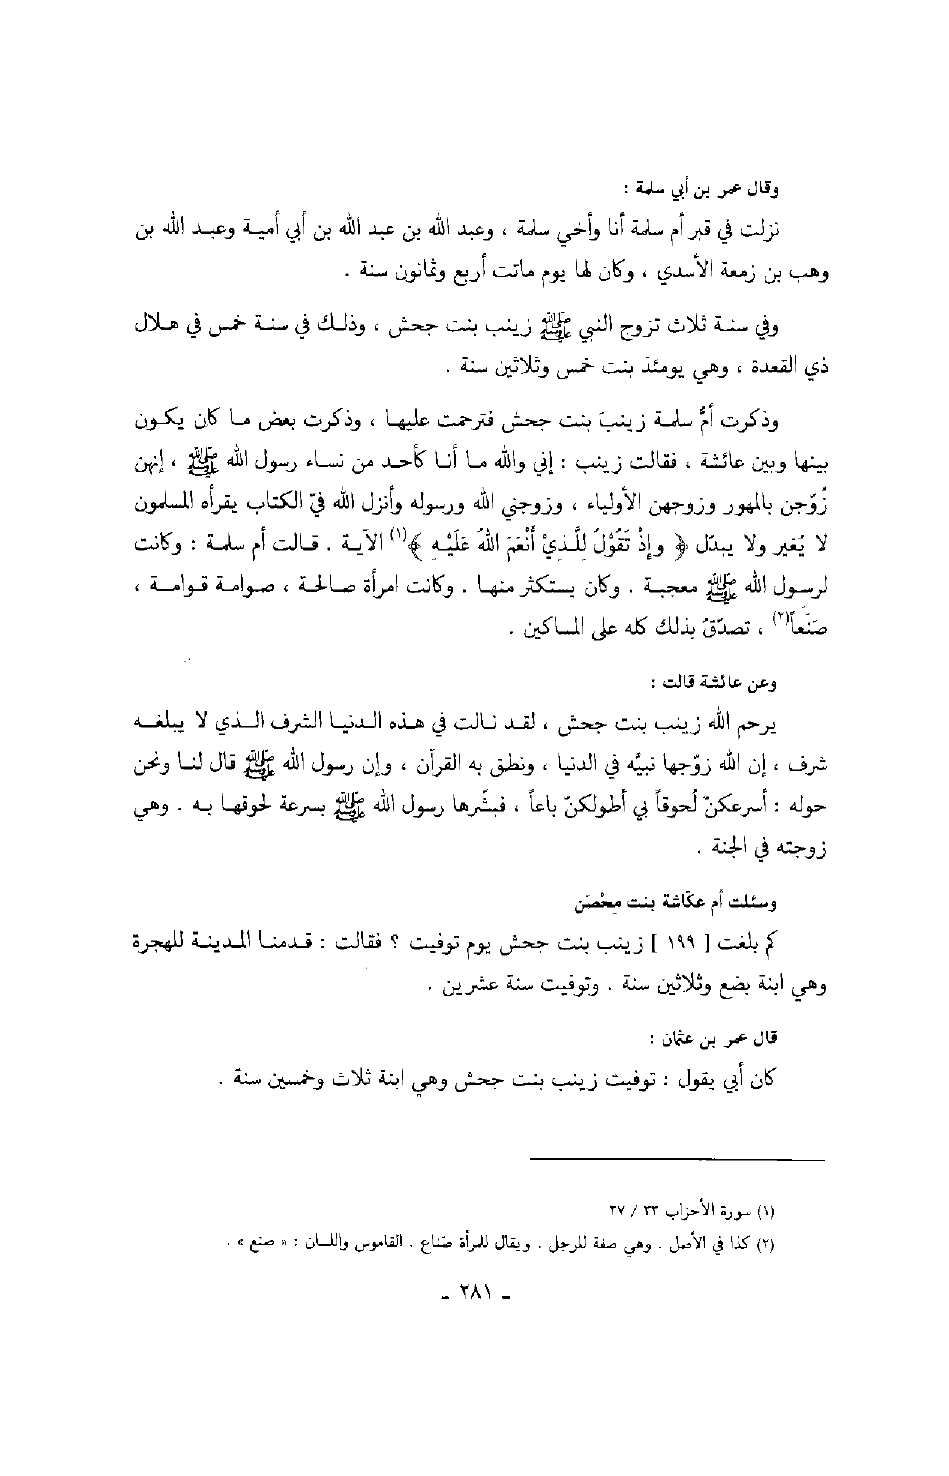 وقال عمر بن أبي سلمة :
نزلت في قبر أم سلمة أنا وأخي سلمة ، وعبد الله بن عبد الله بن أبي أميـة وعبـد الله بن
وهب بن زمعة الأسدي ، وكان لها يوم ماتت أربع وثمانون سنة .
وفي سنـة ثلاث تزوج النبي ﷺ زينب بنت جحش ، وذلـك في سنـة خمس في هـلال
ذي القعدة ، وهي يومئذ بنت خمس وثلاثين سنة .
وذكرت أمّ سلمـة زينبَ بنت جحش فترحمت عليهـا ، وذكرت بعض مـا كان يكـون
بينها وبين عائشة ، فقالت زينب : إني والله مـا أنـا كأحـد من نسـاء رسول الله ﷺ ، إنهن
زُوّجن بالمهور وزوجهن الأولياء ، وزوجني الله ورسوله وأنزل الله فيّ الكتاب يقرأه المسلمون
لا يُغير ولا يبدّل ﴿ وإذْ تَقُوْلُ لِلَّـذِيْ أَنْعَمَ اللهُ عَلَيْـهِ ﴾(١) الآيـة . قـالت أم سلمـة : وكانت
لرسـول الله ﷺ معجبـة . وكان يستكثر منهـا . وكانت امرأة صـالحـة ، صـوامـة قـوامـة ،
صَنَعاً(٢) ، تصدّقُ بذلك كله على المساكين .
وعن عائشة قالت :
يرحم الله زينب بنت جحش ، لقـد نـالت في هـذه الـدنيـا الشرف الـذي لا يبلغـه
شرف ، إن الله زوّجها نبيَّه في الدنيا ، ونطق به القرآن ، وإن رسول الله ﷺ قال لنـا ونحن
حوله : أسرعكنّ لُحوقاً بي أطولكنّ باعاً ، فبشّرها رسول الله ﷺ بسرعة لحوقهـا بـه . وهي
زوجته في الجنة .
وسئلت أم عكّاشة بنت محْصَن
كم بلغت [ ١٩٩ ] زينب بنت جحش يوم توفيت ؟ فقالت : قـدمنـا المـدينـة للهجرة
وهي ابنة بضع وثلاثين سنة . وتوفيت سنة عشرين .
قال عمر بن عثمان :
كان أبي يقول : توفيت زينب بنت جحش وهي ابنة ثلاث وخمسين سنة .
(١) سورة الأحزاب ٣٣ / ٣٧
(٢) كذا في الأصل . وهي صفة للرجل . ويقال للمرأة صَناع . القاموس واللسان : « صنع » .
ـ ٢٨١ ـ